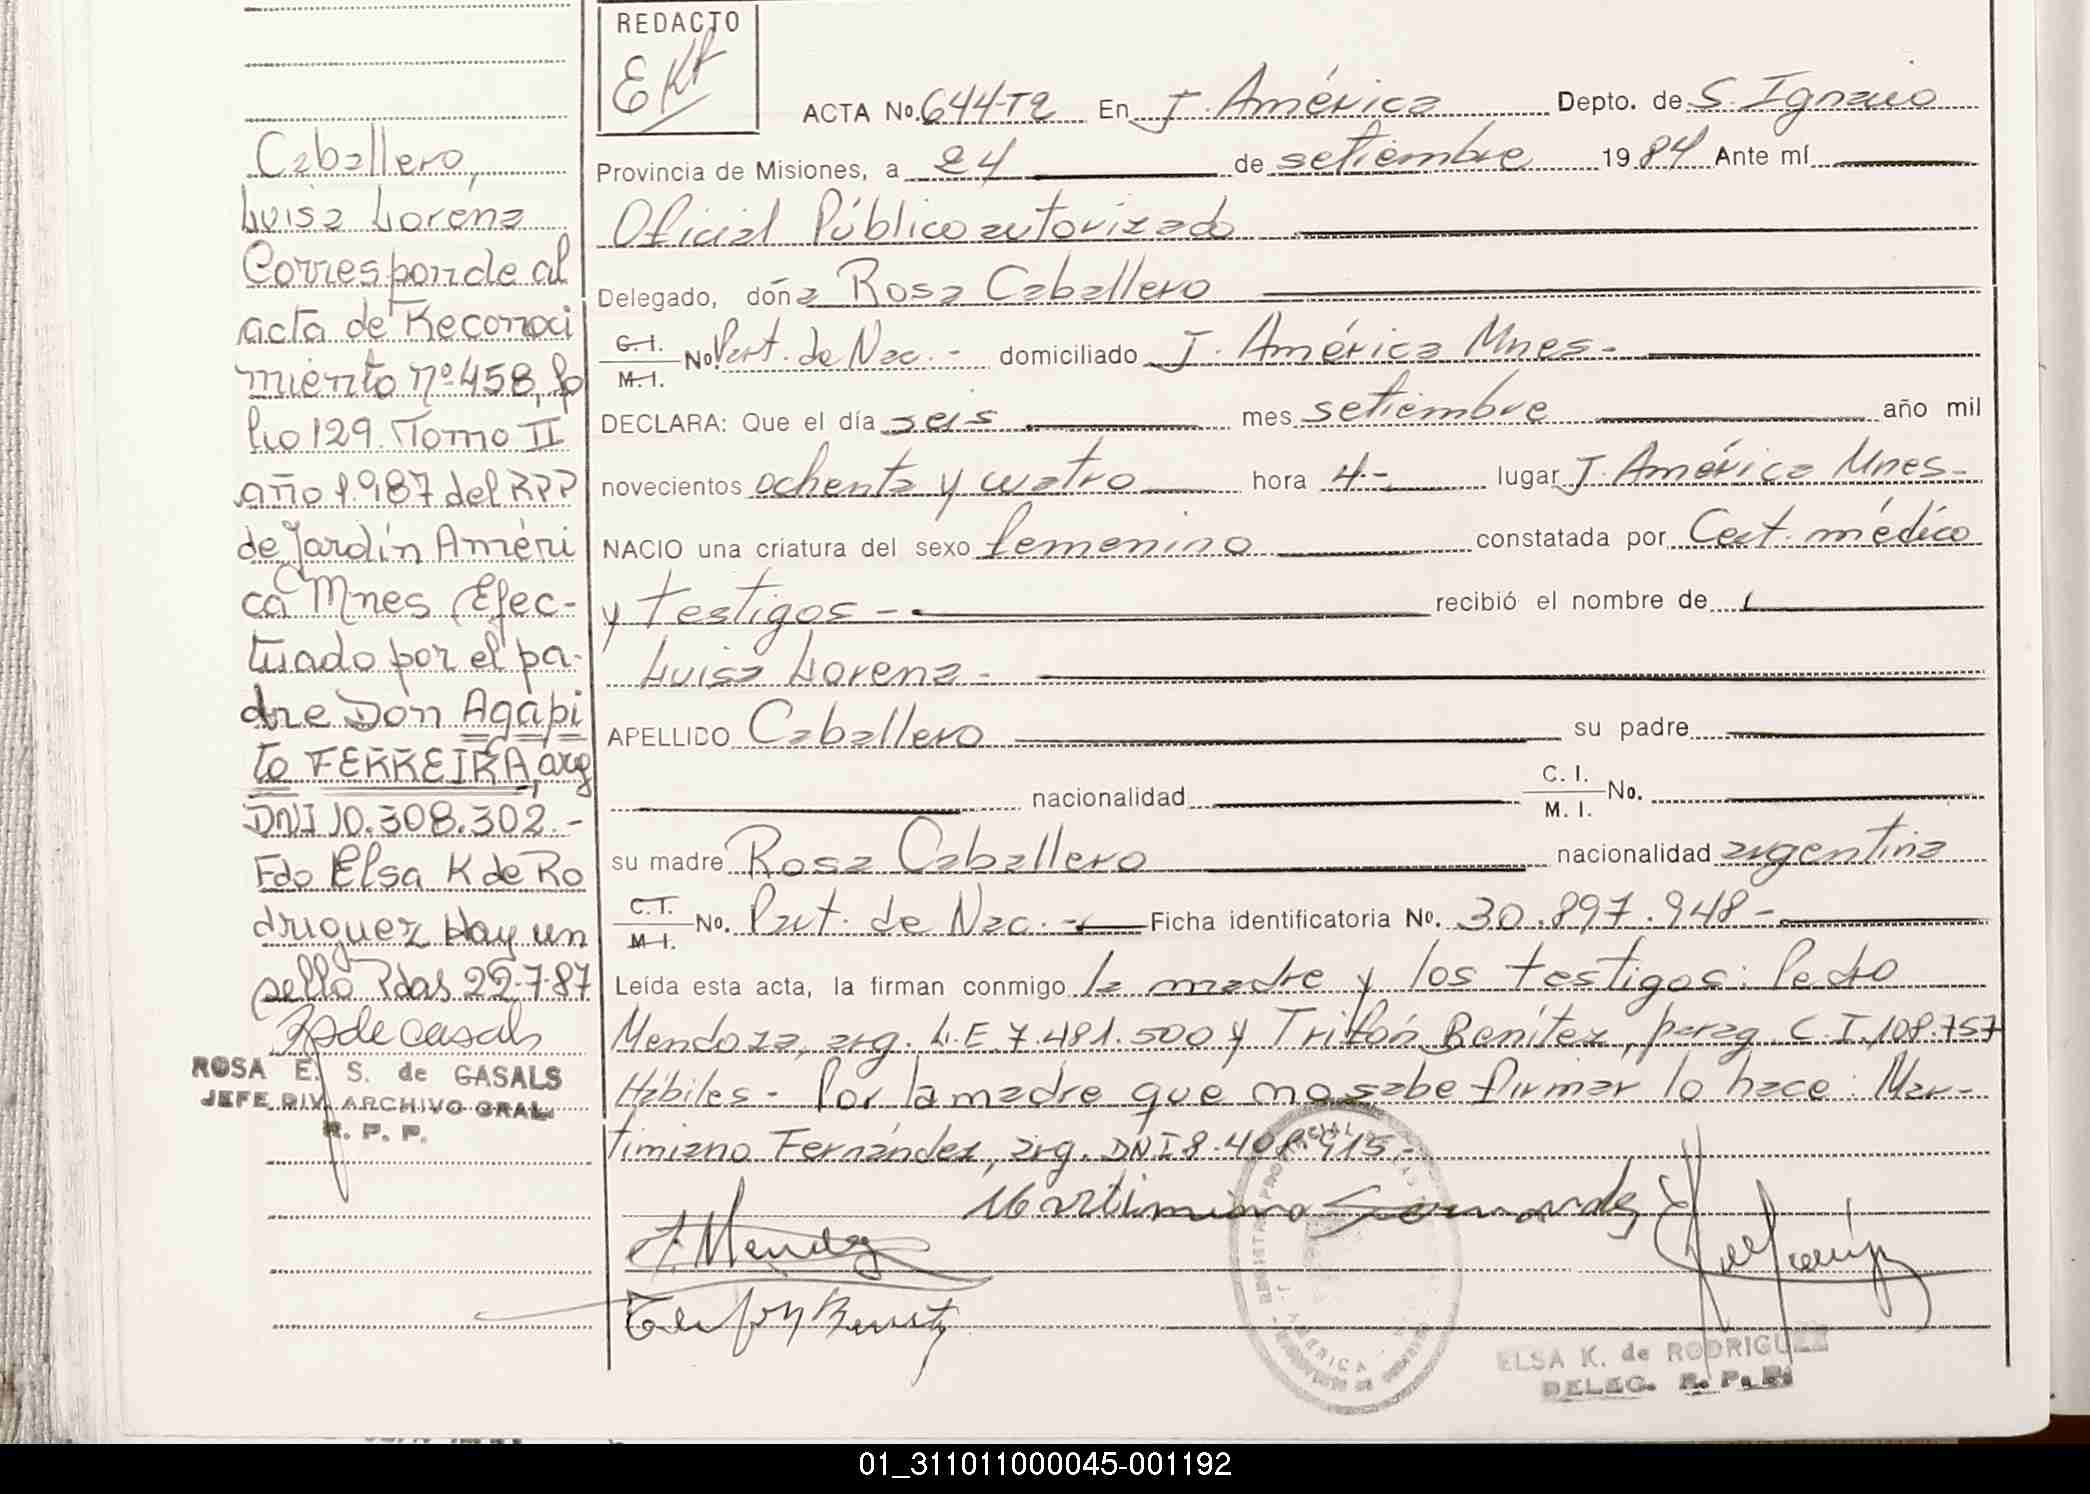 REDACTO
EKR
ACTA No. 644-T2 En J. América Depto. de S. Ignacio
Provincia de Misiones, a 24 de setiembre 1984 Ante mí
Oficial Público autorizado
Delegado, doña Rosa Caballero
C.I. M.I. No. Part. de Nac.- domiciliado J. América Mnes-
DECLARA: Que el día seis mes setiembre año mil
novecientos ochenta y cuatro hora 4.- lugar J. América Mnes-
NACIO una criatura del sexo femenino constatada por Cert. médico
y testigos - recibió el nombre de
Luisa Lorena -
APELLIDO Caballero su padre
nacionalidad C. I. M. I. No.
su madre Rosa Caballero nacionalidad argentina
C.I. M.I. No. Part. de Nac.- Ficha identificatoria No. 30.897.948-
Leída esta acta, la firman conmigo la madre y los testigos: Pedro
Mendoza, arg. L.E. 7.481.500 y Trifón Benítez, parag. C.I. 108.757
Hábiles - Por la madre que no sabe firmar lo hace: Mar-
timiano Fernández, arg. DNI 8.408.915.-
Caballero,
Luisa Lorena
Corresponde al
acta de Reconoci
miento nº 458, fo
lio 129. Tomo II
año 1.987 del RPP
de Jardín Améri
ca Mnes Efec-
tuado por el pa-
dre Don Agapi
to FERREIRA, arg
DNI 10.308.302.-
Fdo Elsa K de Ro
driguez Hay un
sello Pdas 22-7-87
R de Casals
ROSA E. S. de CASALS
JEFE DIV. ARCHIVO GRAL.
R. P. P.
Martimiano Fernandez
P. Mendoza
Trifon Benitez
AMERICA
ELSA K. de RODRIGUEZ
DELEG. R. P. P.
01_311011000045-001192